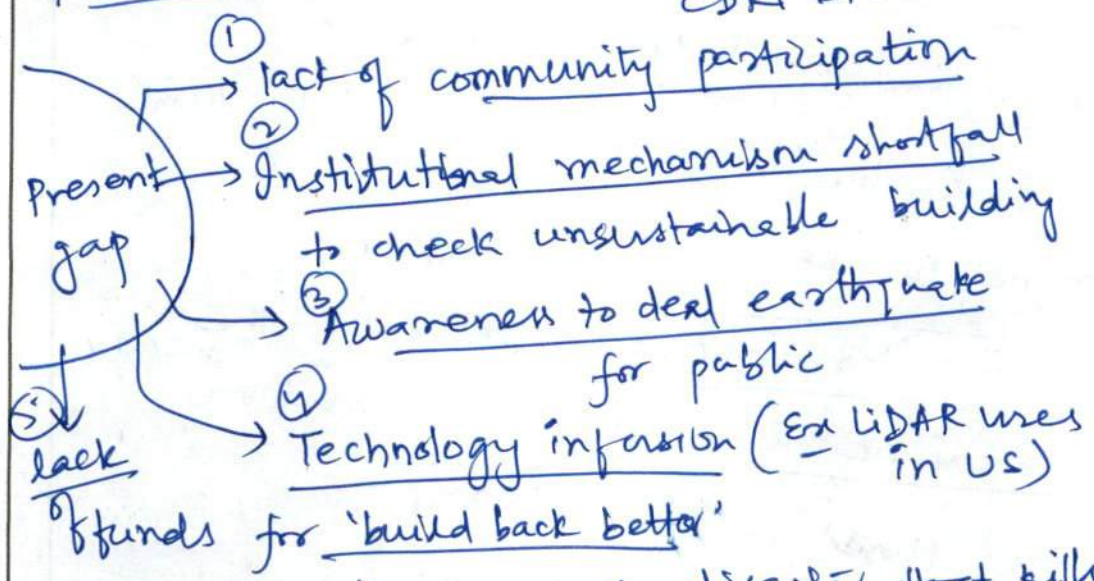 ①
lack of community participation
②
Present gap
Institutional mechanism shortfall
to check unsustainable building
③
Awareness to deal earthquake
for public
④
Technology infusion (Ex LiDAR uses
in US)
⑤
lack
of funds for 'build back better'